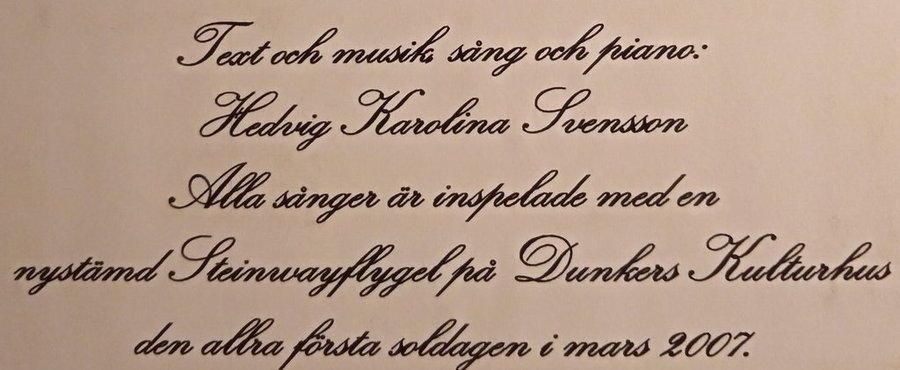 Text och musik, sång och piano:
Hedvig Karolina Svensson
Alla sånger är inspelade med en
nystämd Steinwayflygel på Dunkers Kulturhus
den allra första soldagen i mars 2007.